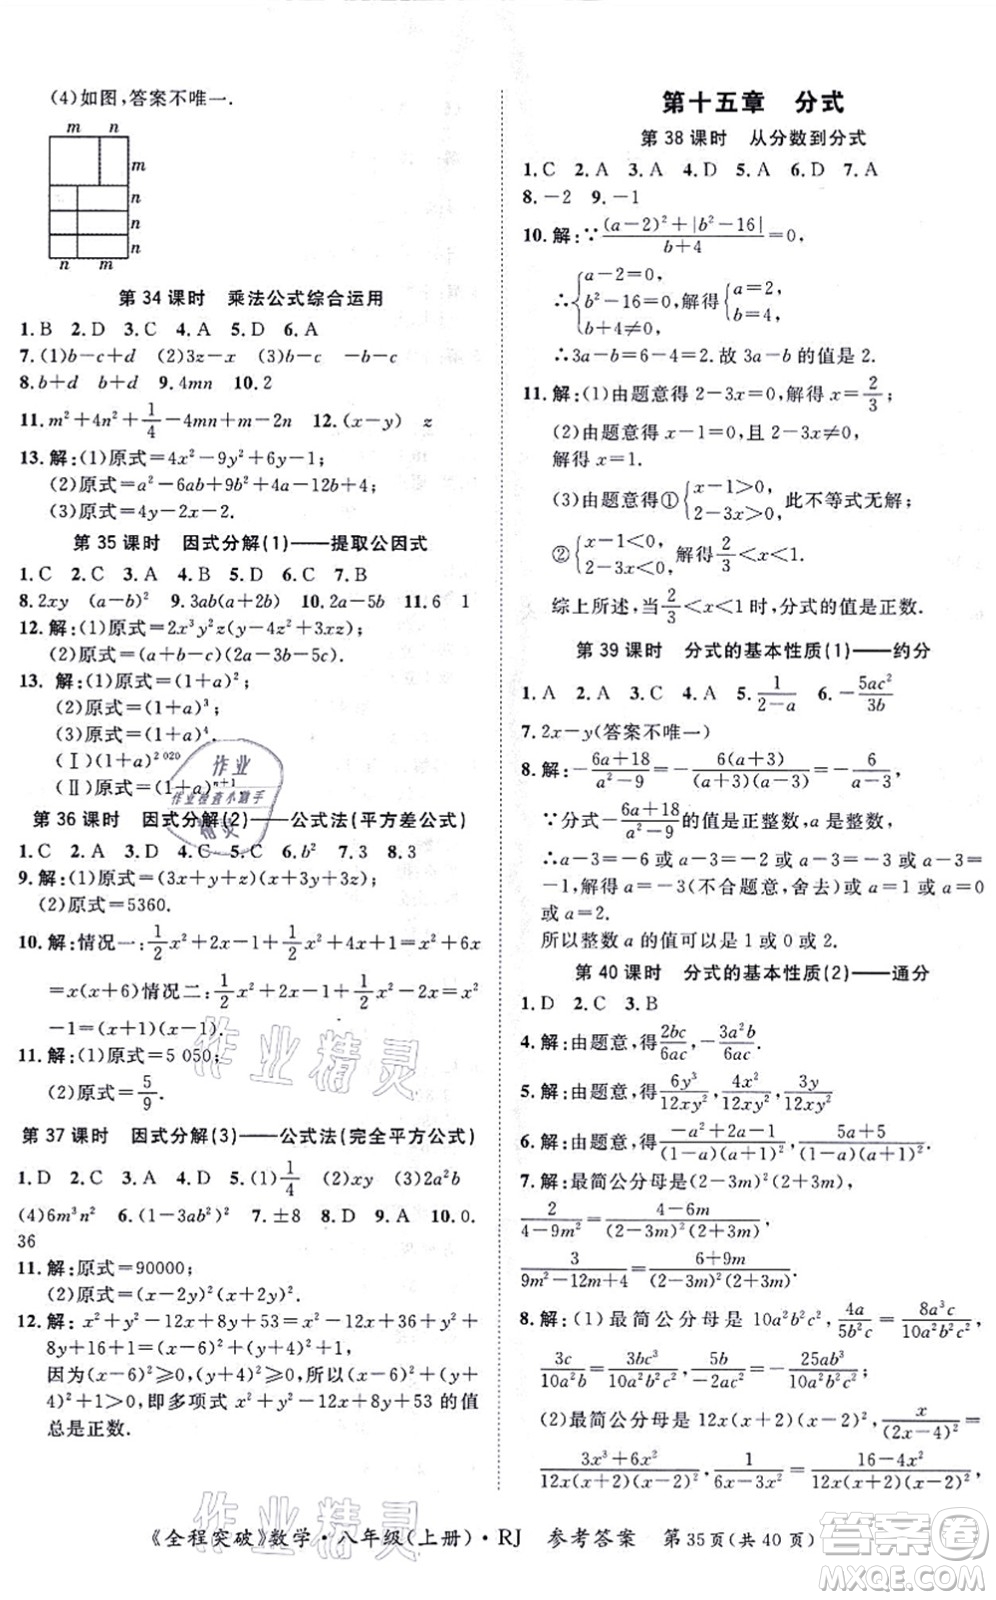 (4)如图,答案不唯一.
m n
m
n
n
n
n m
第 34 课时 乘法公式综合运用
1. B 2. D 3. C 4. A 5. D 6. A
7. (1)b-c+d (2)3z-x (3)b-c -b-c
8. b+d b+d 9. 4mn 10. 2
11. m²+4n²+1/4-4mn+m-2n 12. (x-y) z
13. 解:(1)原式=4x²-9y²+6y-1;
(2)原式=a²-6ab+9b²+4a-12b+4;
(3)原式=4y-2x-2.
第 35 课时 因式分解(1)——提取公因式
1. C 2. C 3. A 4. B 5. D 6. C 7. C
8. 2xy (a-b)² 9. 3ab(a+2b) 10. 2a-5b 11. 6 1
12. 解:(1)原式=2x³y²z(y-4z);
(2)原式=(a+b)(a-b-1).
13. 解:(1)原式=(1+a)²;
(2)原式=(1+a)³;
(3)原式=(1+a)⁴.
(Ⅰ)(1+a)²⁰²⁰
(Ⅱ)原式=(1+a)ⁿ⁺¹.
第 36 课时 因式分解(2)——公式法(平方差公式)
1. C 2. B 3. C 4. C 5. C 6. b² 7. 3 8. 3
9. 解:(1)原式=(3x+y+z)(x+y+3z);
(2)原式=5360.
10. 解:情况一:1/2x²+2x-1+1/2x²+4x+1=x²+6x
=x(x+6)情况二:1/2x²+2x-1+1/2x²-2x=x²
-1=(x+1)(x-1).
11. 解:(1)原式=5 050;
(2)原式=5/9.
第 37 课时 因式分解(3)——公式法(完全平方公式)
1. D 2. C 3. A 4. D 5. (1)1/4 (2)xy (3)4a²b
(4)6m³n² 6. (1-3ab²)² 7. ±8 8. A 9. C 10. 0.
36
11. 解:(1)原式=90000;
(2)原式=(x-y)²(x+y)².
12. 解:x²+y²-12x+8y+53=x²-12x+36+y²+
8y+16+1=(x-6)²+(y+4)²+1,
因为(x-6)²≥0,(y+4)²≥0,所以(x-6)²+(y+
4)²+1>0,即多项式 x²+y²-12x+8y+53 的值
总是正数.
第十五章 分式
第 38 课时 从分数到分式
1. C 2. A 3. A 4. D 5. A 6. D 7. A
8. -2 9. -1
10. 解:∵((a-2)²+|b²-16|)/(b+4)=0,
∴{a-2=0, b²-16=0, b+4≠0, 解得{a=2, b=4,
∴3a-b=6-4=2. 故 3a-b 的值是 2.
11. 解:(1)由题意得 2-3x=0,解得 x=2/3;
(2)由题意得 x-1=0,且 2-3x≠0,
解得 x=1.
(3)由题意得①{x-1>0, 2-3x>0, 此不等式无解;
②{x-1<0, 2-3x<0, 解得 2/3<x<1.
综上所述,当2/3<x<1时,分式的值是正数.
第 39 课时 分式的基本性质(1)——约分
1. A 2. A 3. C 4. A 5. 1/(2-a) 6. -5ac²/3b
7. 2x-y(答案不唯一)
8. 解:-(6a+18)/(a²-9)=-6(a+3)/((a+3)(a-3))=-6/(a-3)
∵分式-(6a+18)/(a²-9)的值是正整数,a 是整数,
∴a-3=-6或a-3=-3或a-3=-2或a-3=
-1,解得 a=-3(不合题意,舍去)或 a=0或 a=1
或 a=2.
所以整数 a 的值可以是 1 或 0 或 2.
第 40 课时 分式的基本性质(2)——通分
1. D 2. C 3. B
4. 解:由题意,得2bc/6ac,-3a²b/6ac.
5. 解:由题意,得6y³/12xy²,4x²/12xy²,xy/12xy².
6. 解:由题意,得(-a²+2a-1)/((1-a)(1-a)²),(5a+5)/((1-a)(1+a)²).
7. 解:最简公分母是(2-3m)²(2+3m),
2/(4-9m²)=(4-6m)/((2-3m)²(2+3m)),
3/(9m²-12m+4)=(6+9m)/((2-3m)²(2+3m)).
8. 解:(1)最简公分母是 10a²b²c²,4a/5b²c²=8a³/10a²b²c²,
3c/10a²b=3bc³/10a²b²c²,5b/-2ac²=-25ab³/10a²b²c².
(2)最简公分母是 12x(x+2)(x-2)²,x/(2x-4)²=
(3x³+6x²)/(12x(x+2)(x-2)²),1/(6x-3x²)=(16-4x²)/(12x(x+2)(x-2)²),
《全程突破》数学·八年级(上册)·RJ 参考答案 第35页(共 40 页)
作业
作业检查小助手
精灵
作业精灵
作业精灵
答案圈
MXQE.COM